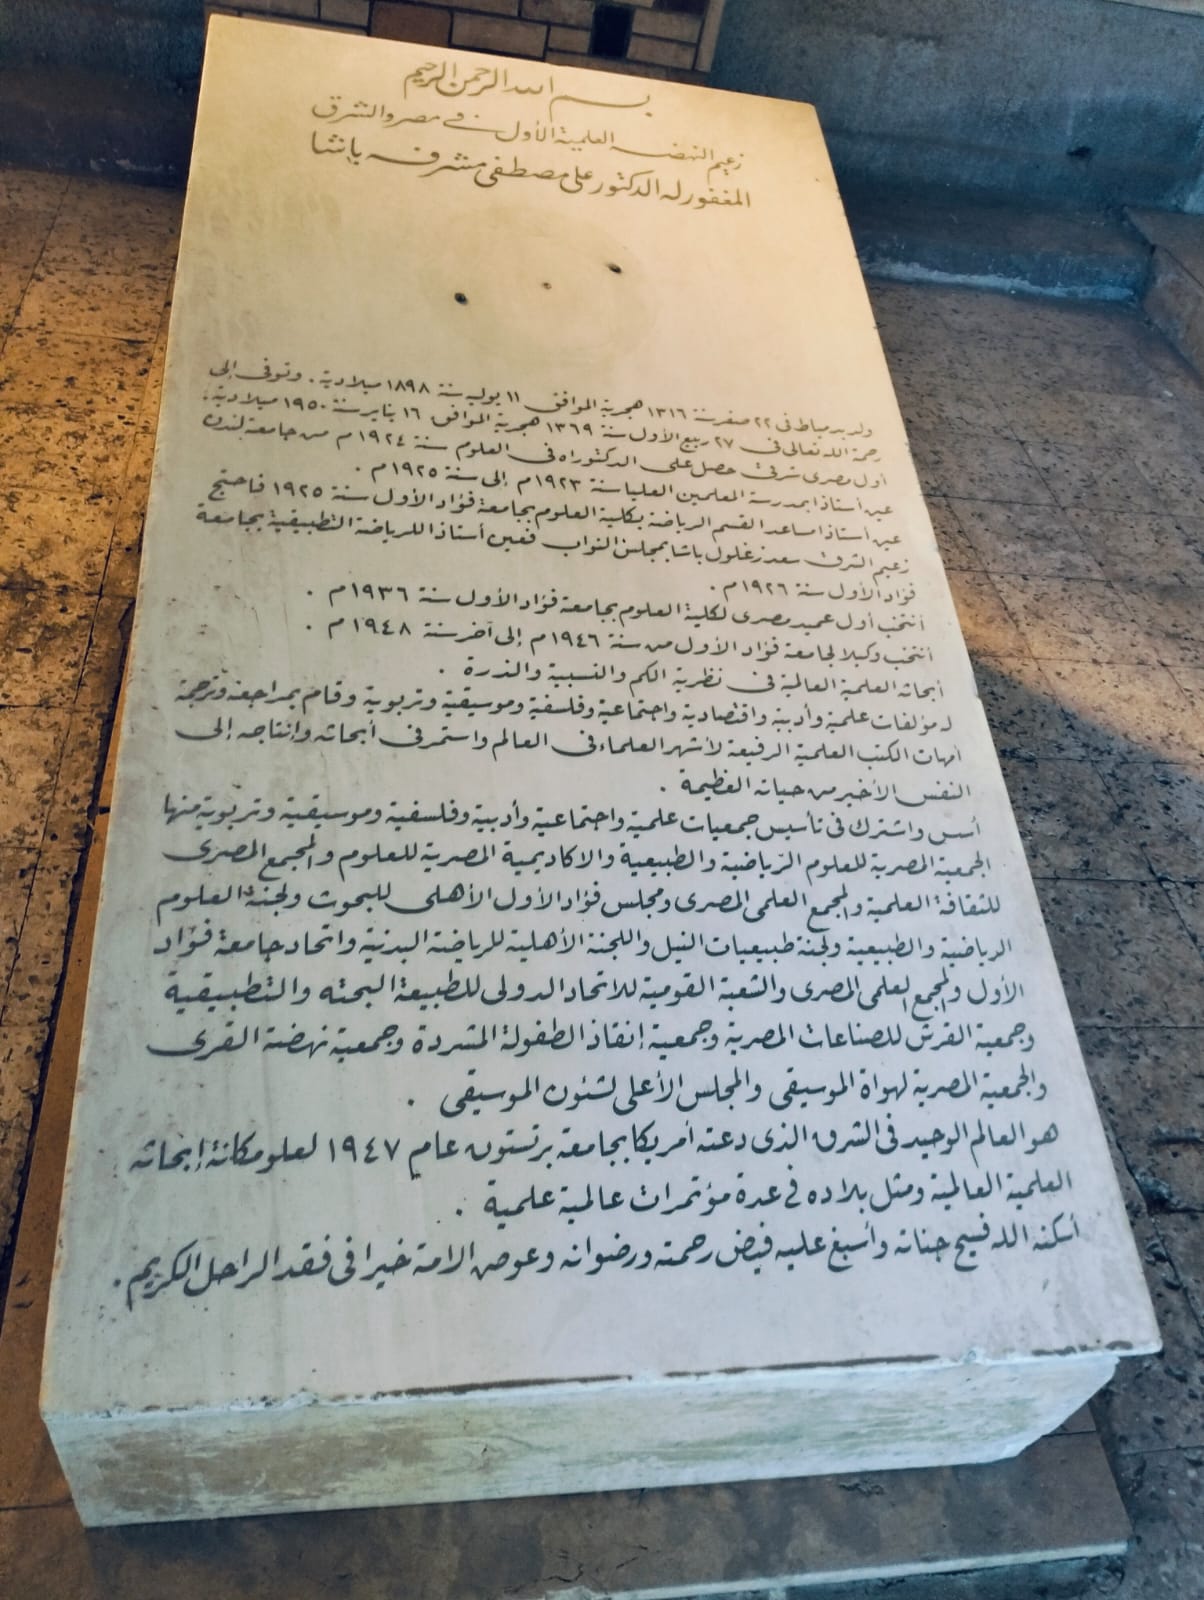 بسم الله الرحمن الرحيم
زعيم النهضه العلمية الأول في مصر والشرق
المغفور له الدكتور على مصطفى مشرفه باشا
ولد بدمياط فى ٢٢ صفر سنة ١٣١٦ هجرية الموافق ١١ يوليه سنة ١٨٩٨ ميلادية . وتوفى إلى
رحمة الله تعالى فى ٢٧ ربيع الأول سنة ١٣٦٩ هجرية الموافق ١٦ يناير سنة ١٩٥٠ ميلادية .
أول مصرى شرقى حصل على الدكتوراه فى العلوم سنة ١٩٢٤ م من جامعة لندن
عين أستاذا بمدرسة المعلمين العليا سنة ١٩٢٣ م إلى سنة ١٩٢٥ م .
عين أستاذا مساعد القسم الرياضة بكلية العلوم بجامعة فؤاد الأول سنة ١٩٢٥ فاحتج
زعيم الشرق سعد زغلول باشا بمجلس النواب فعين أستاذا للرياضة التطبيقية بجامعة
فؤاد الأول سنة ١٩٢٦ م .
أنتخب أول عميد مصرى لكلية العلوم بجامعة فؤاد الأول سنة ١٩٣٦ م .
أنتخب وكيلا لجامعة فؤاد الأول من سنة ١٩٤٦ م إلى آخر سنة ١٩٤٨ م .
أبحاثه العلمية العالمية فى نظرية الكم والنسبية والذرة .
له مؤلفات علمية وأدبية واقتصادية واجتماعية وفلسفية وموسيقية وتربوية وقام بمراجعة وترجمة
أمهات الكتب العلمية الرفيعة لأشهر العلماء فى العالم واستمر فى أبحاثه وإنتاجه إلى
النفس الأخير من حياته العظيمة .
أسس واشترك فى تأسيس جمعيات علمية واجتماعية وأدبية وفلسفية وموسيقية وتربوية منها
الجمعية المصرية للعلوم الرياضية والطبيعية والاكاديمية المصرية للعلوم والمجمع المصرى
للثقافة العلمية والمجمع العلمى المصرى ومجلس فؤاد الأول الأهلى للبحوث ولجنة العلوم
الرياضية والطبيعية ولجنة طبيعيات النيل واللجنة الأهلية للرياضة البدنية واتحاد جامعة فؤاد
الأول والمجمع العلمى المصرى والشعبة القومية للاتحاد الدولى للطبيعة البحته والتطبيقية
وجمعية القرش للصناعات المصرية وجمعية إنقاذ الطفولة المشردة وجمعية نهضة القرى
والجمعية المصرية لهواة الموسيقى والمجلس الأعلى لشئون الموسيقى .
هو العالم الوحيد فى الشرق الذى دعته أمريكا بجامعة برنستون عام ١٩٤٧ لعلو مكانة إبحاثه
العلمية العالمية ومثل بلاده فى عدة مؤتمرات عالمية علمية .
أسكنه الله فسيح جناته وأسبغ عليه فيض رحمته ورضوانه وعوض الامة خيرا فى فقد الراحل الكريم .